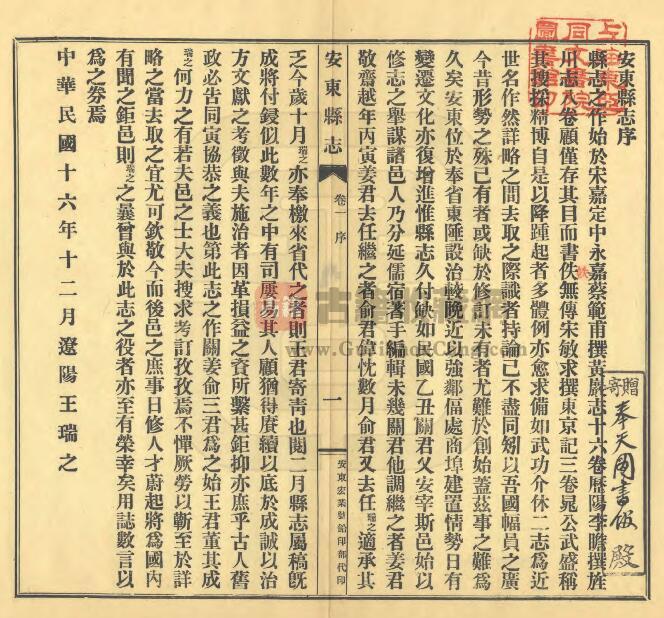 安東縣志序
縣志之作始於宋嘉定中永嘉蔡範甫撰黃巖志十六卷歷陽李瞻撰旌
川志八卷顧僅存其目而書佚無傳宋敏求撰東京記三卷晁公武盛稱
其搜採精博自是以降踵起者多體例亦愈求備如武功介休二志為近
世名作然詳略之間去取之際識者特論已不盡同矧以吾國幅員之廣
今昔形勢之殊已有者或缺於修訂未有者尤難於創始蓋茲事之難為
久矣安東位於奉省東陲設治較晚近以強鄰偪處商埠建置情勢日有
變遷文化亦復增進惟縣志久付缺如民國乙丑關君父安宰斯邑始以
修志之舉謀諸邑人乃分延儒宿著手編輯未幾關君他調繼之者姜君
敬齋越年丙寅姜君去任繼之者俞君偉忱數月俞君又去任瑞之適承其
安東縣志
卷一 序
一
安東宏業號鉛印部代印
乏今歲十月瑞之亦奉檄來省代之者則王君寄青也閱二月縣志屬稿既
成將付鋟似此數年之中有司屢易其人顧猶得賡續以底於成誠以治
方文獻之考徵與夫施治者因革損益之資所繫甚鉅抑亦庶乎古人舊
政必告同寅協恭之義也第此志之作關姜俞三君為之始王君董其成
瑞之何力之有若夫邑之士大夫搜求考訂孜孜焉不憚厥勞以蘄至於詳
略之當去取之宜尤可欽敬今而後邑之庶事日修人才蔚起將為國內
有聞之鉅邑則瑞之之曩曾與於此志之役者亦至有榮幸矣用誌數言以
為之券焉
中華民國十六年十二月遼陽王瑞之
寄贈
奉天圖書館殿
www.GujiShuCang.com